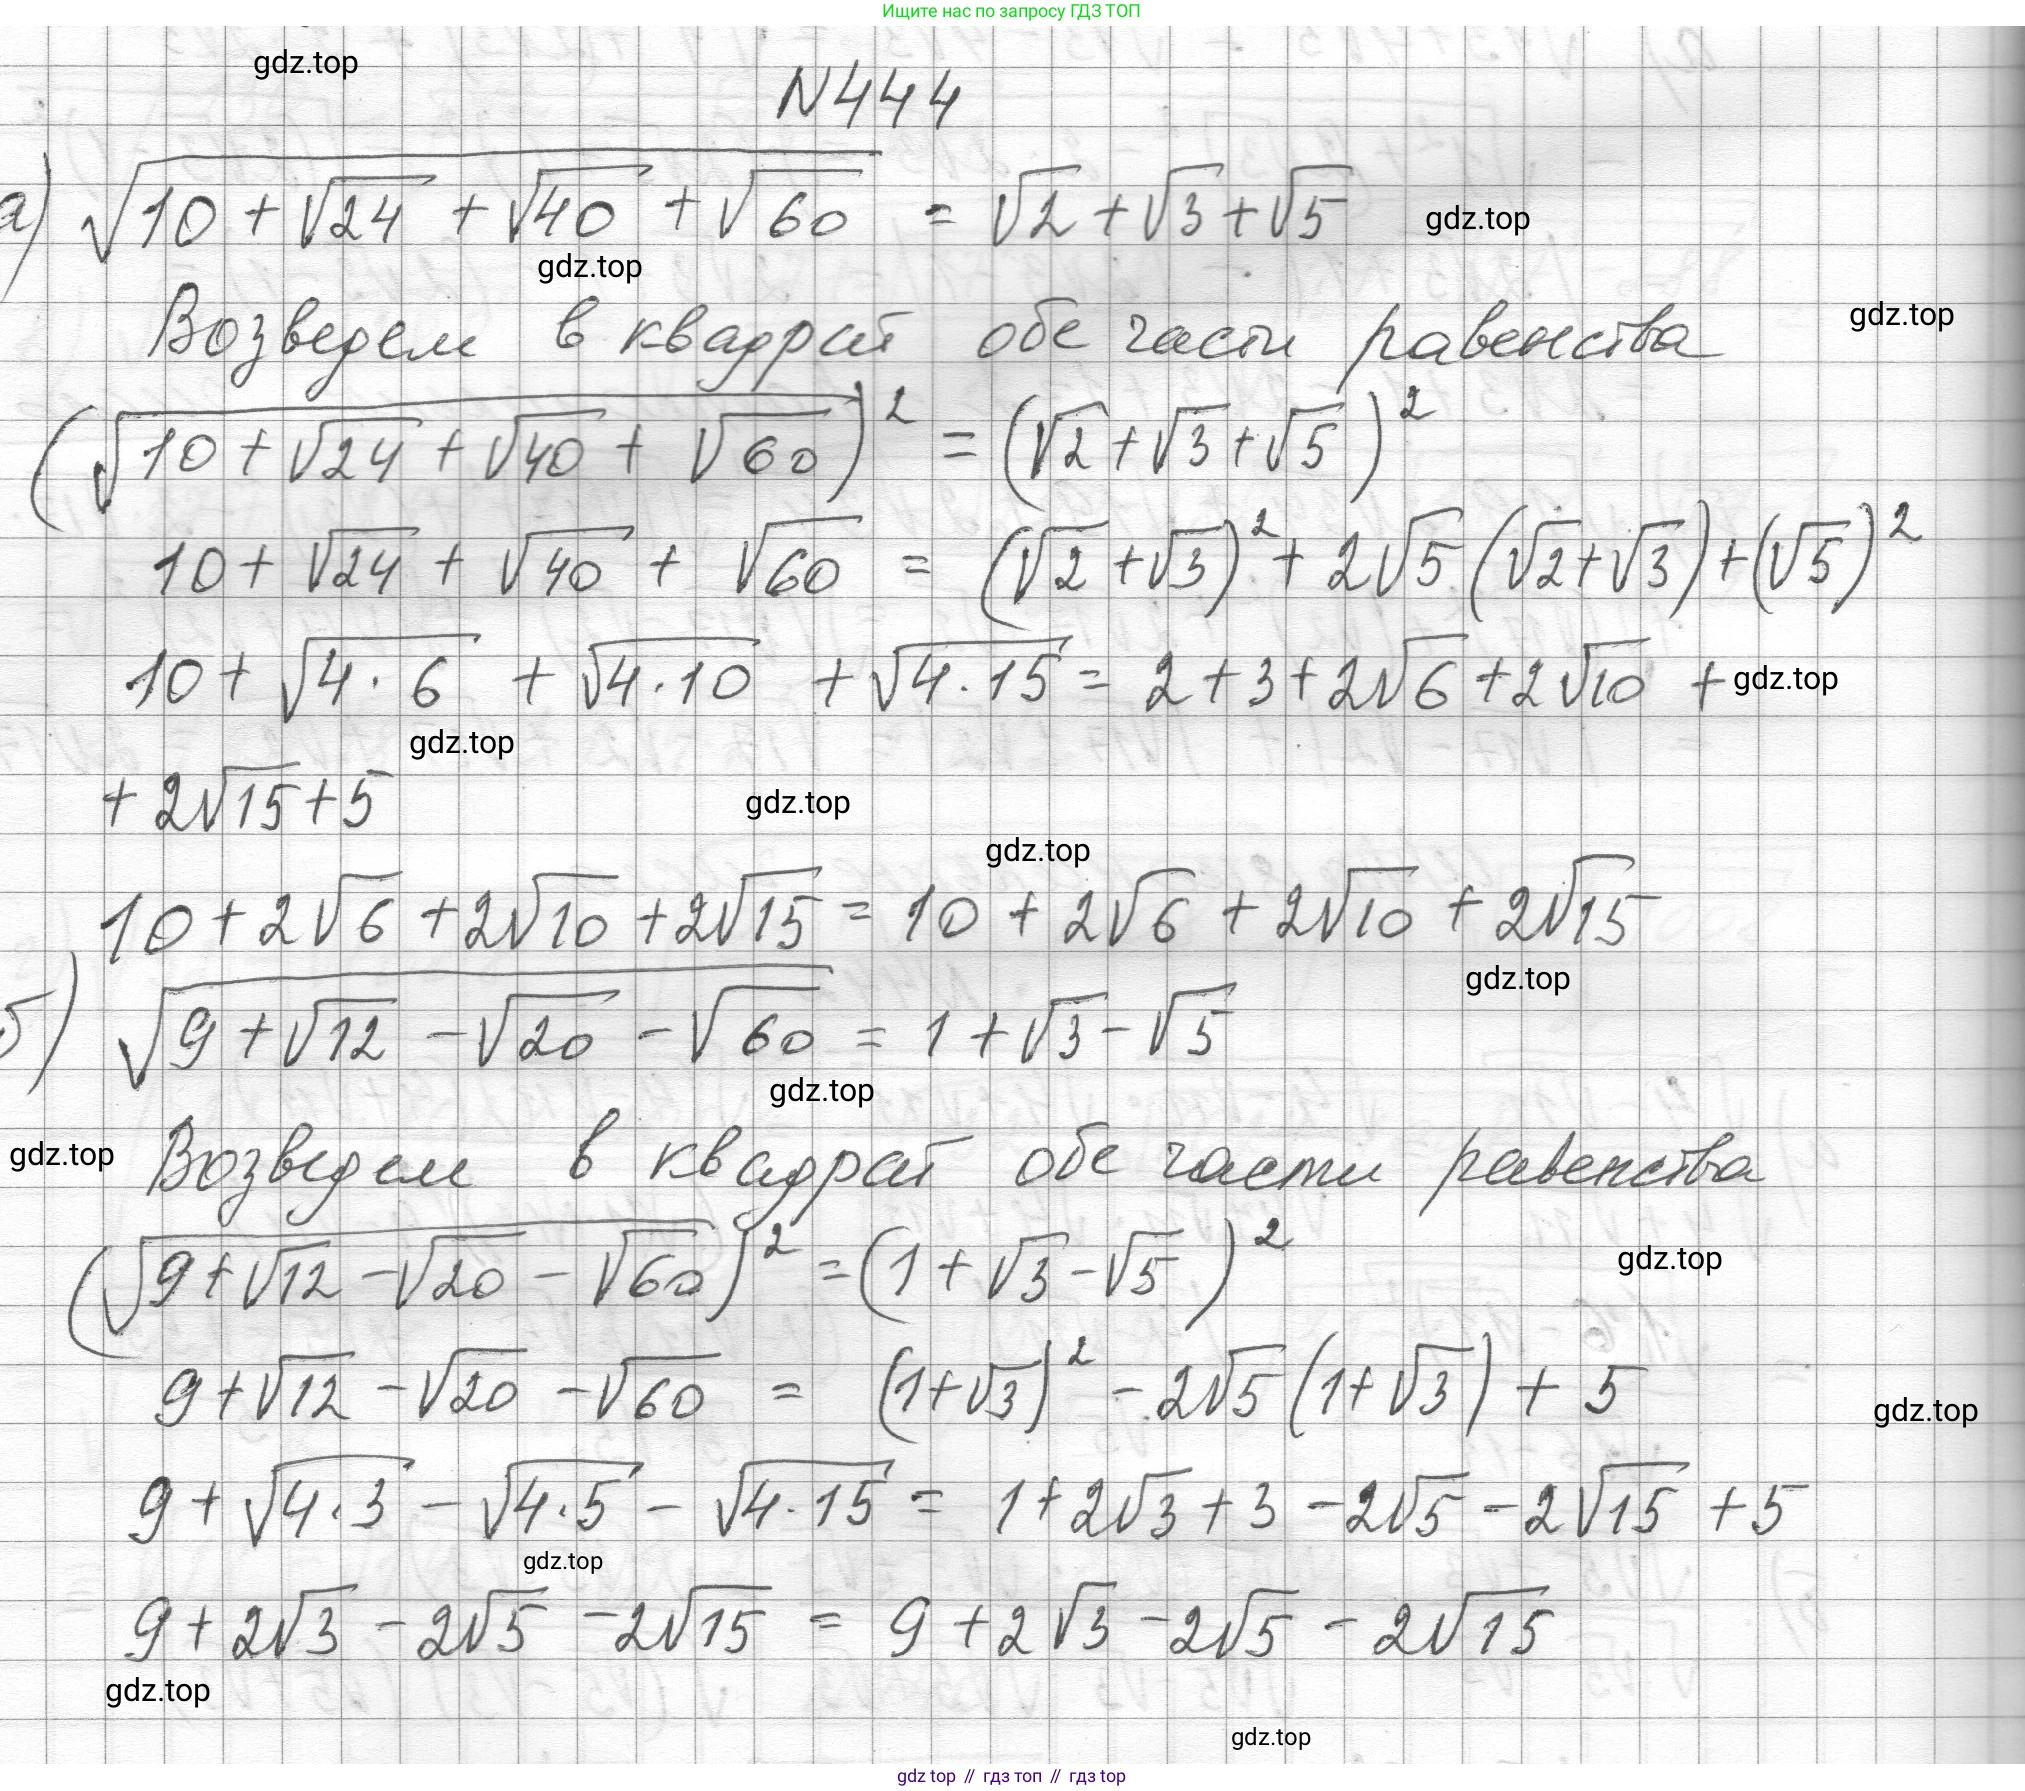 Ищите нас по запросу ГДЗ ТОП
gdz.top
N444
а) √(10 + √24 + √40 + √60) = √2 + √3 + √5
gdz.top
gdz.top
Возведем в квадрат обе части равенства
gdz.top
(√(10 + √24 + √40 + √60))² = (√2 + √3 + √5)²
10 + √24 + √40 + √60 = (√2 + √3)² + 2√5 (√2 + √3) + (√5)²
10 + √(4 · 6) + √(4 · 10) + √(4 · 15) = 2 + 3 + 2√6 + 2√10 +
gdz.top
gdz.top
+ 2√15 + 5
gdz.top
gdz.top
10 + 2√6 + 2√10 + 2√15 = 10 + 2√6 + 2√10 + 2√15
gdz.top
б) √(9 + √12 - √20 - √60) = 1 + √3 - √5
gdz.top
gdz.top
Возведем в квадрат обе части равенства
(√(9 + √12 - √20 - √60))² = (1 + √3 - √5)²
gdz.top
9 + √12 - √20 - √60 = (1 + √3)² - 2√5 (1 + √3) + 5
gdz.top
9 + √(4 · 3) - √(4 · 5) - √(4 · 15) = 1 + 2√3 + 3 - 2√5 - 2√15 + 5
gdz.top
9 + 2√3 - 2√5 - 2√15 = 9 + 2√3 - 2√5 - 2√15
gdz.top
gdz.top
gdz top // гдз топ // гдз top